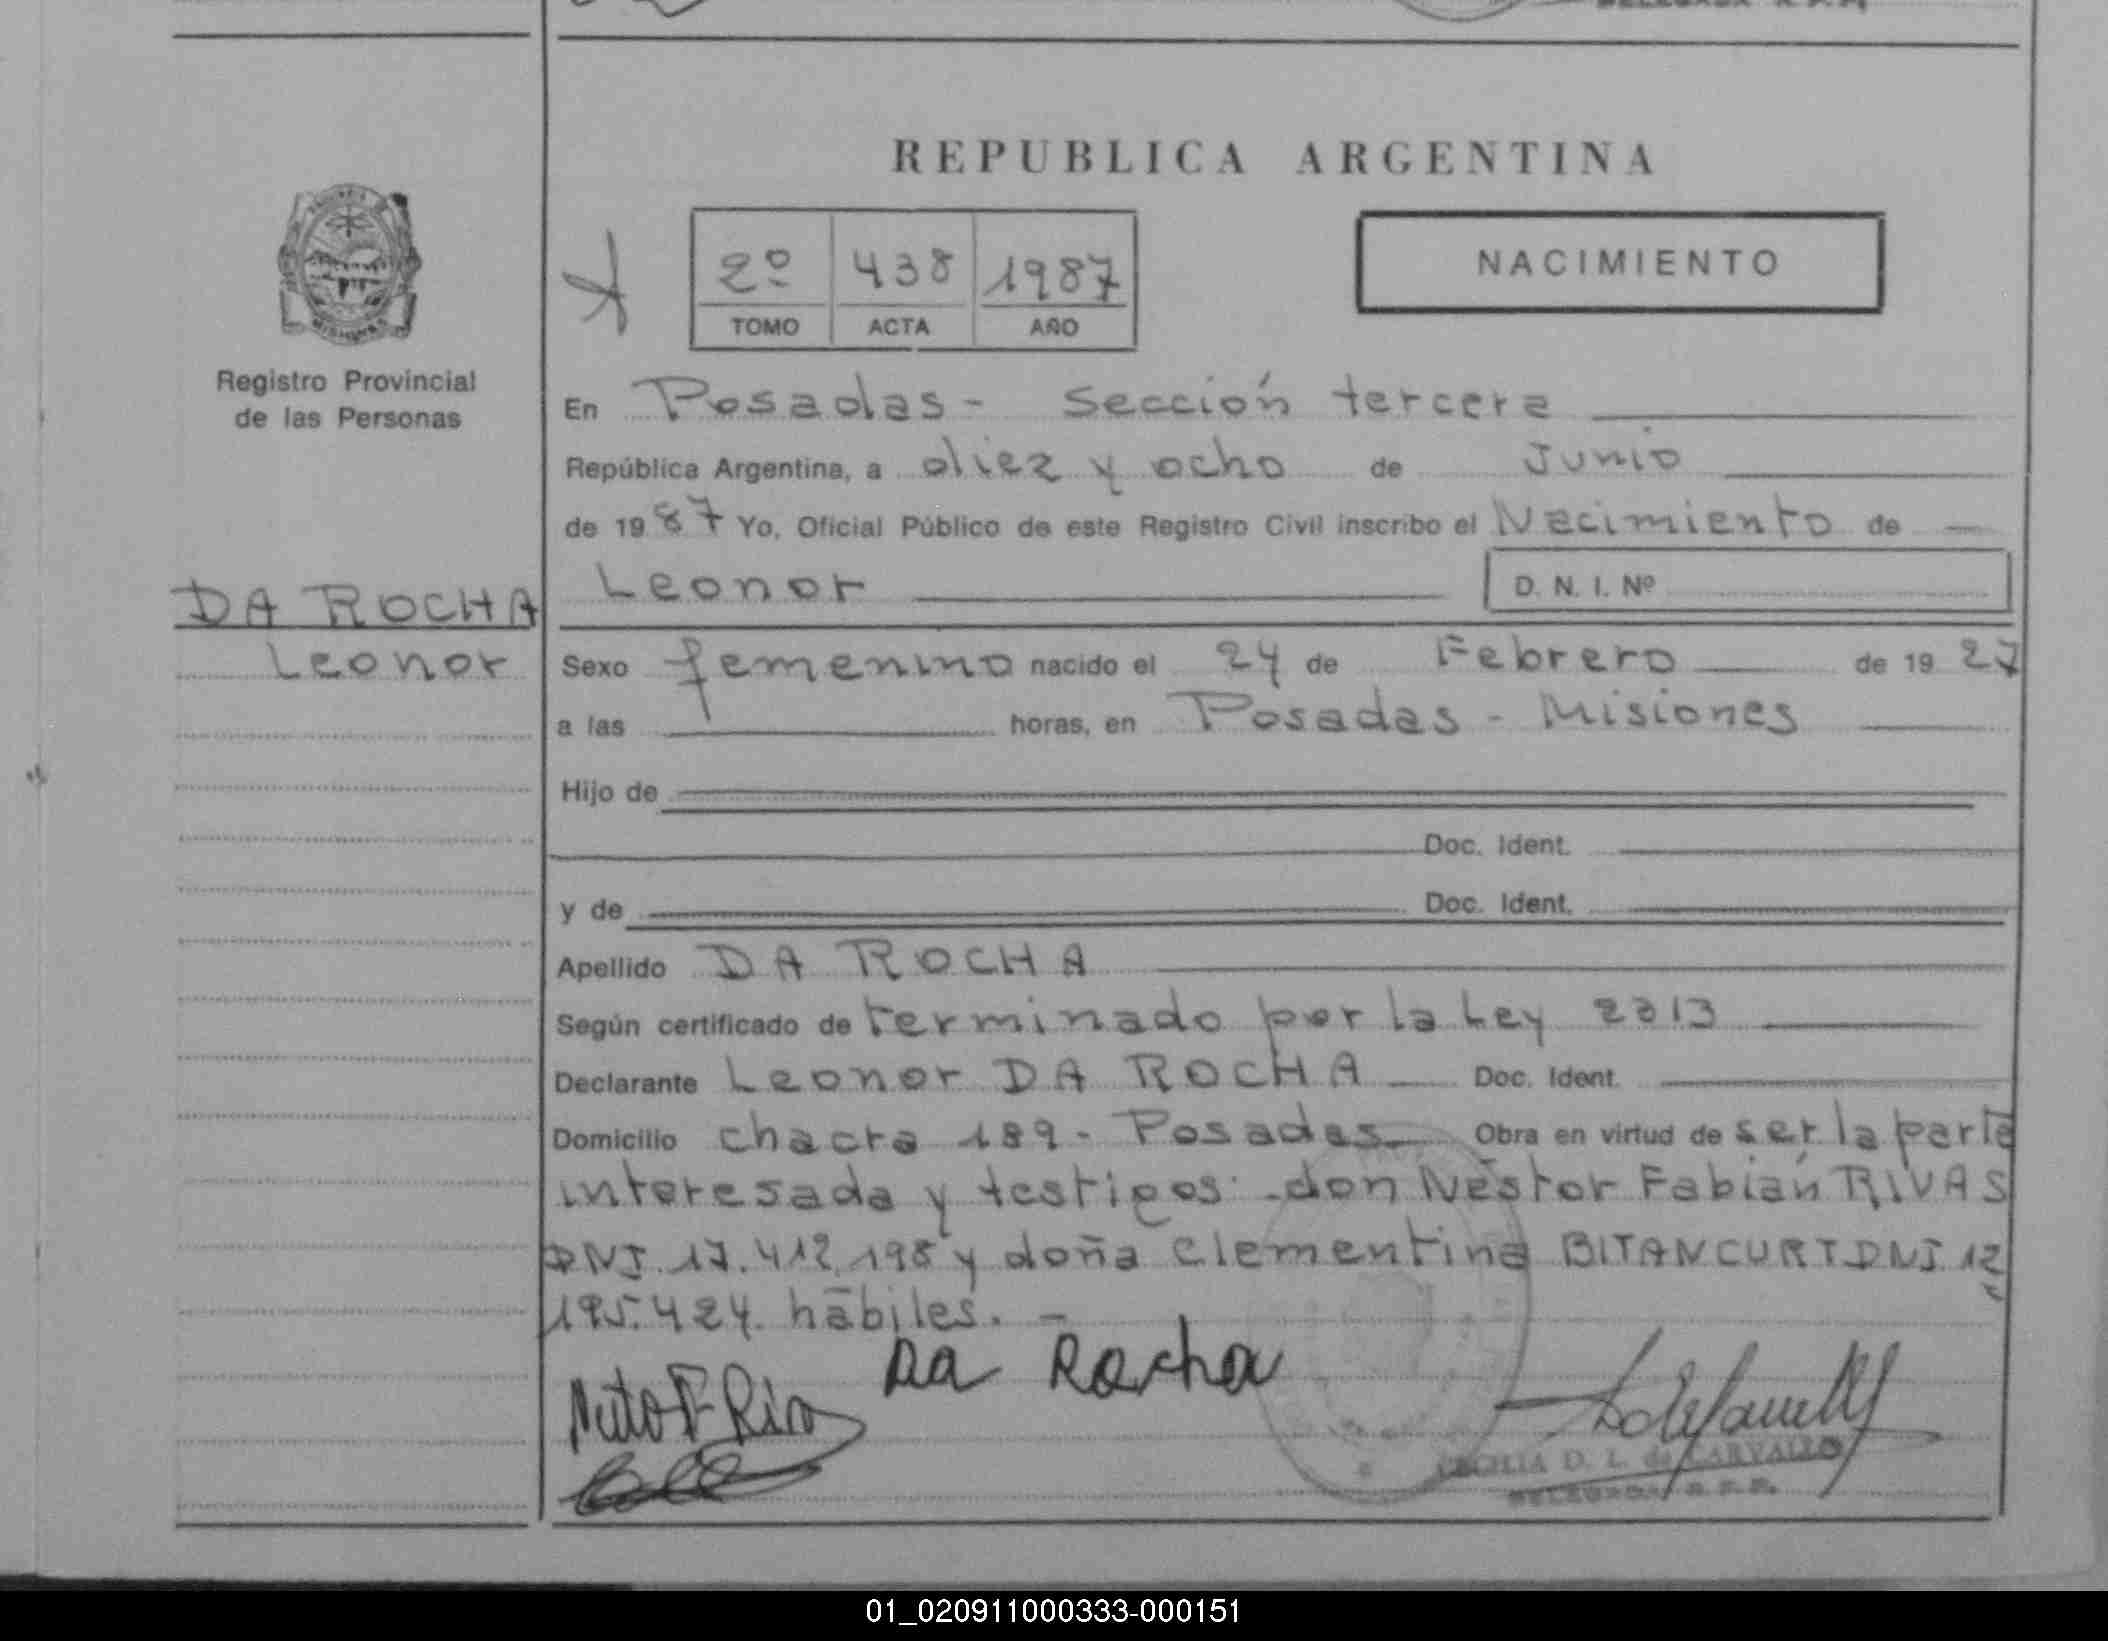 DELEGADA R.P.P.
REPUBLICA ARGENTINA
2º 438 1987
TOMO ACTA AÑO
NACIMIENTO
Registro Provincial
de las Personas
En Posadas - Sección tercera
República Argentina, a diez y ocho de Junio
de 1987 Yo, Oficial Público de este Registro Civil inscribo el Nacimiento de
DA ROCHA
Leonor
Leonor D. N. I. Nº
Sexo femenino nacido el 24 de Febrero de 1927
a las horas, en Posadas - Misiones
Hijo de
Doc. Ident.
y de Doc. Ident.
Apellido DA ROCHA
Según certificado de terminado por la Ley 2313
Declarante Leonor DA ROCHA Doc. Ident.
Domicilio chacra 189 - Posadas Obra en virtud de ser la parte
interesada y testigos: don Néstor Fabián RIVAS
DNI. 17.412.198 y doña Clementina BITANCURT DNI. 12
195.424. hábiles. -
Da Rocha
CECILIA D. L. de CARVALLO
DELEGADA R.P.P.
01_020911000333-000151